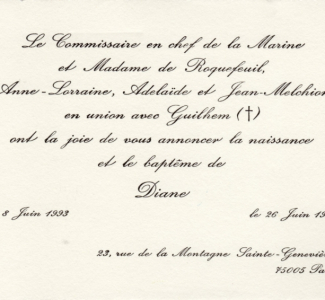 Le Commissaire en chef de la Marine
et Madame de Roquefeuil,
Anne-Lorraine, Adelaïde et Jean-Melchior
en union avec Guilhem (†)
ont la joie de vous annoncer la naissance
et le baptême de
Diane
8 Juin 1993 le 26 Juin 19
23, rue de la Montagne Sainte-Geneviè
75005 Pa